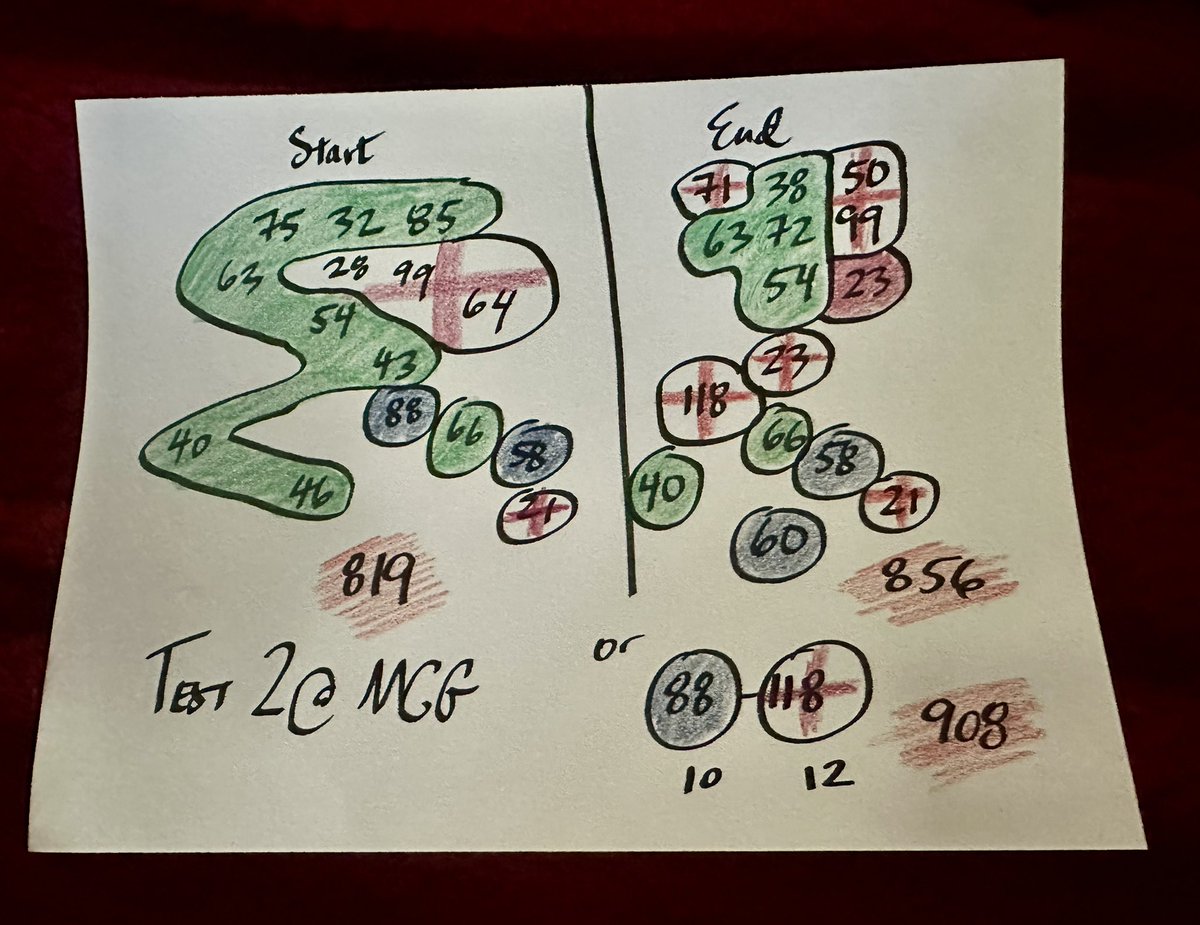 Start
75 32 85
63 28 99
64
54
43
88 66 58
40
46
21
819
TEST 2@ MCG
End
71 38 50
63 72 99
54 23
23
118
66 58
40 21
60
856
or
88 118 908
10 12